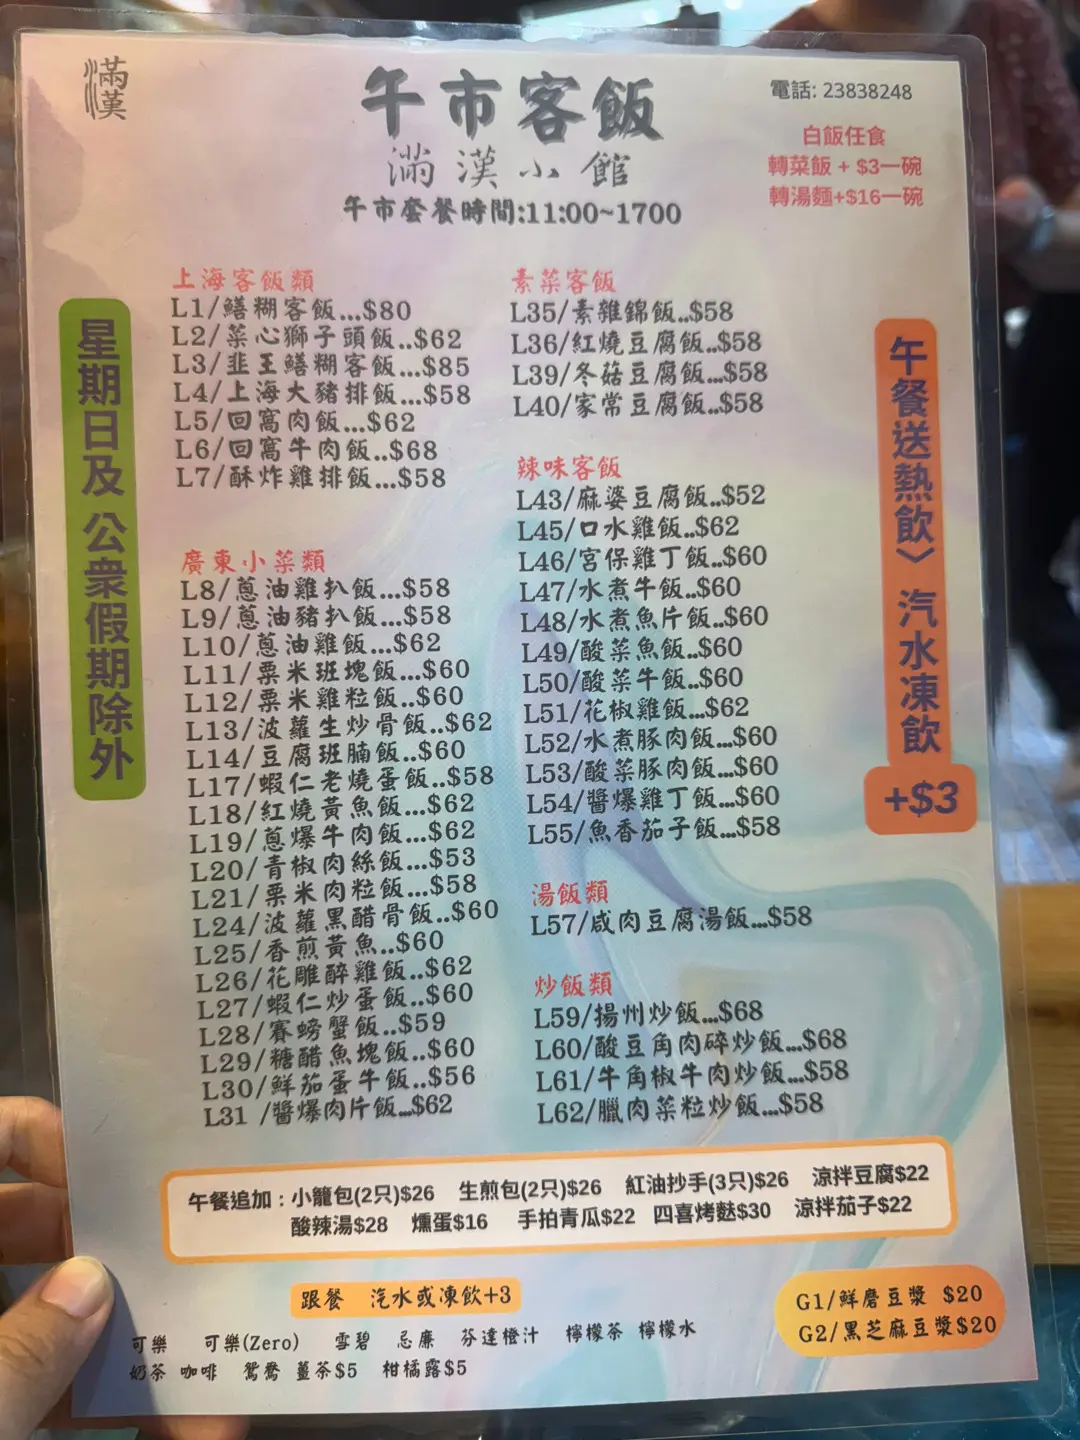 滿漢
午市客飯
滿漢小館
午市套餐時間:11:00~1700
電話: 23838248
白飯任食
轉菜飯 + $3一碗
轉湯麵+$16一碗
星期日及 公衆假期除外
上海客飯類
L1/鱔糊客飯...$80
L2/菜心獅子頭飯..$62
L3/韭王鱔糊客飯...$85
L4/上海大豬排飯...$58
L5/回窩肉飯...$62
L6/回窩牛肉飯..$68
L7/酥炸雞排飯...$58
廣東小菜類
L8/蔥油雞扒飯...$58
L9/蔥油豬扒飯...$58
L10/蔥油雞飯...$62
L11/粟米班塊飯...$60
L12/粟米雞粒飯...$60
L13/波蘿生炒骨飯..$62
L14/豆腐班腩飯..$60
L17/蝦仁老燒蛋飯..$58
L18/紅燒黃魚飯...$62
L19/蔥爆牛肉飯...$62
L20/青椒肉絲飯...$53
L21/粟米肉粒飯...$58
L24/波蘿黑醋骨飯..$60
L25/香煎黃魚..$60
L26/花雕醉雞飯..$62
L27/蝦仁炒蛋飯..$60
L28/賽螃蟹飯..$59
L29/糖醋魚塊飯..$60
L30/鮮茄蛋牛飯..$56
L31 /醬爆肉片飯...$62
素菜客飯
L35/素雜錦飯...$58
L36/紅燒豆腐飯...$58
L39/冬菇豆腐飯...$58
L40/家常豆腐飯..$58
辣味客飯
L43/麻婆豆腐飯...$52
L45/口水雞飯...$62
L46/宮保雞丁飯...$60
L47/水煮牛飯...$60
L48/水煮魚片飯...$60
L49/酸菜魚飯...$60
L50/酸菜牛飯...$60
L51/花椒雞飯...$62
L52/水煮豚肉飯...$60
L53/酸菜豚肉飯...$60
L54/醬爆雞丁飯...$60
L55/魚香茄子飯...$58
湯飯類
L57/咸肉豆腐湯飯...$58
炒飯類
L59/揚州炒飯...$68
L60/酸豆角肉碎炒飯...$68
L61/牛角椒牛肉炒飯...$58
L62/臘肉菜粒炒飯...$58
午餐送熱飲〉 汽水凍飲
+$3
午餐追加 : 小籠包(2只)$26 生煎包(2只)$26 紅油抄手(3只)$26 涼拌豆腐$22
酸辣湯$28 燻蛋$16 手拍青瓜$22 四喜烤麩$30 涼拌茄子$22
跟餐 汽水或凍飲+3
可樂 可樂(Zero) 雪碧 忌廉 芬達橙汁 檸檬茶 檸檬水
奶茶 咖啡 鴛鴦 薑茶$5 柑橘露$5
G1/鮮磨豆漿 $20
G2/黑芝麻豆漿$20